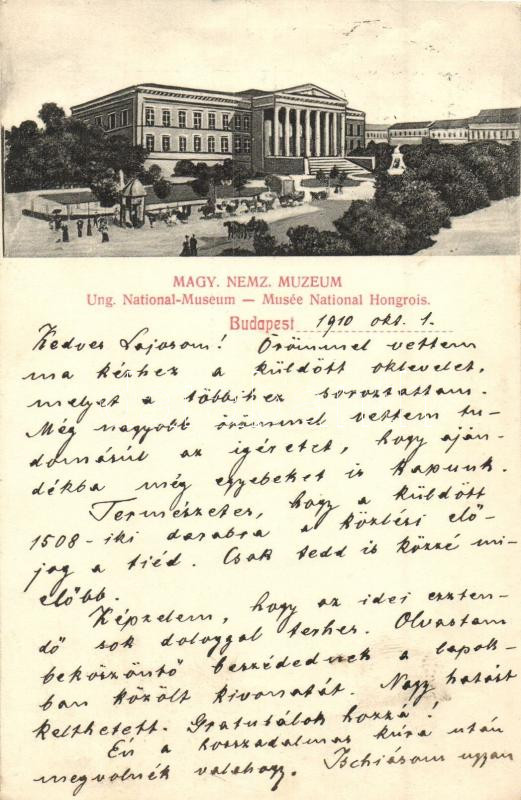 MAGY. NEMZ. MUZEUM
Ung. National-Museum — Musée National Hongrois.
Budapest 1910 okt. 1.
Kedves Lajosom! Örömmel vettem
ma kézhez a küldött oklevelet,
melyet a többihez soroztattam.
Még nagyobb örömmel vettem tu-
domásúl az igéretet, hogy aján-
dékba még egyebeket is kapunk.
Természetes, hogy a küldött
1508-iki darabra a közlési elő-
jog a tiéd. Csak tedd is közzé mi-
előbb.
Képzelem, hogy az idei eszten-
dő sok dologgal terhes. Olvastam
beköszöntő beszédednek a lapok-
ban közölt kivonatát. Nagy hatást
kelthetett. Gratulálok hozzá!
Én a hosszadalmas kúra után
megvolnék valahogy. Ischiásom ugyan